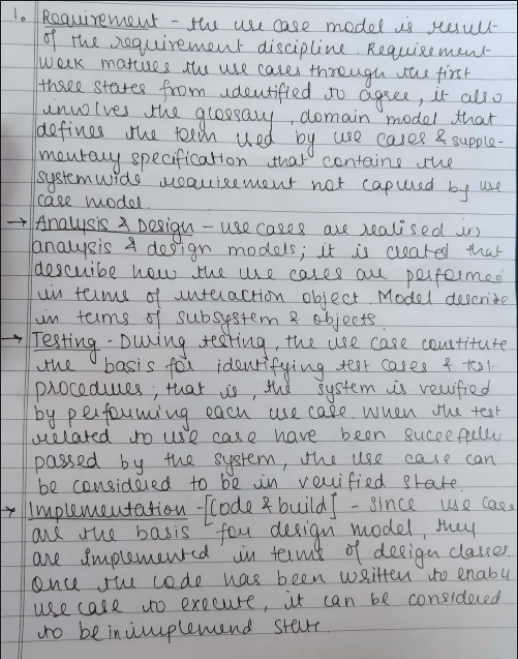 1. Requirement - the use case model is result
of the requirement discipline. Requirement
work matures the use cases through the first
three states from identified to agree, it also
involves the glossary, domain model that
defines the term used by use cases & supple-
mentary specification that contains the
systemwide requirement not capured by use
case model.
→ Analysis & Design - use cases are realised in
analysis & design models; it is created that
describe how the use cases are performed
in terms of interaction object. Model describe
in terms of subsystem & objects.
→ Testing - During testing, the use case constitute
the basis for identifying test cases & test
procedures; that is, the system is verified
by performing each use case. When the test
related to use case have been succefully
passed by the system, the use case can
be considered to be in verified state.
→ Implementation - [code & build] - since use case
are the basis for design model, they
are implemented in terms of design classes.
Once the code has been written to enable
use case to execute, it can be considered
to be in implemend state.